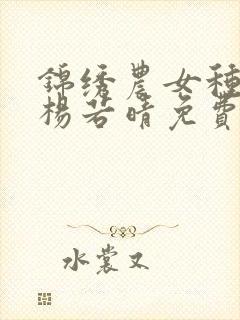 錦绣農女種
楊若晴免費
水裳又